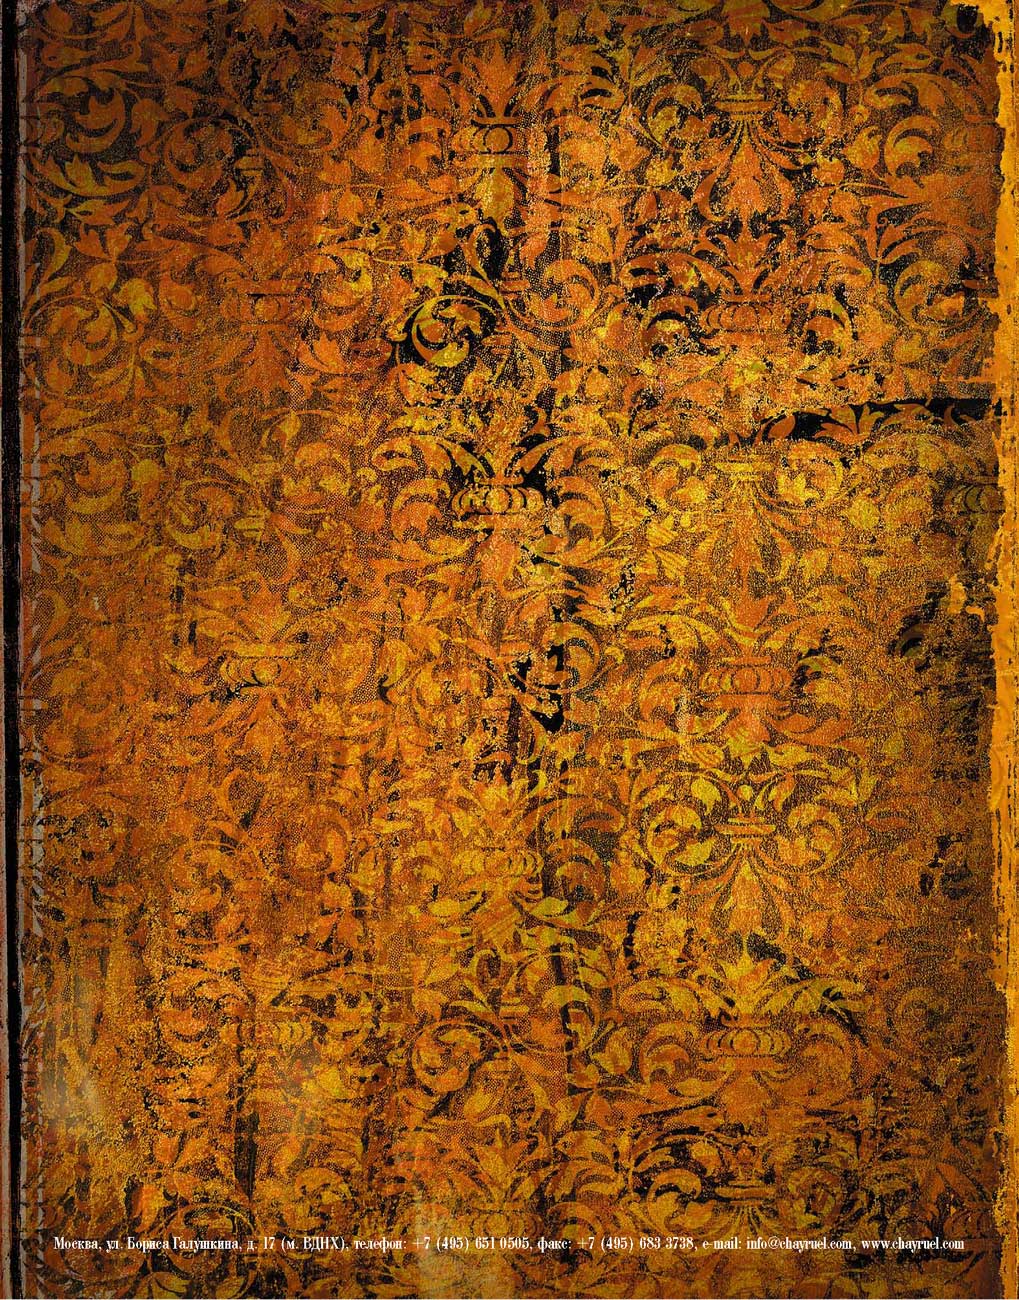 Москва, ул. Бориса Галушкина, д. 17 (м. ВДНХ), телефон: +7 (495) 651 0505, факс: +7 (495) 683 3738, e-mail: info@chayruel.com, www.chayruel.com